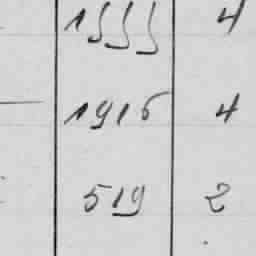 1555 4
1916 4
519 2